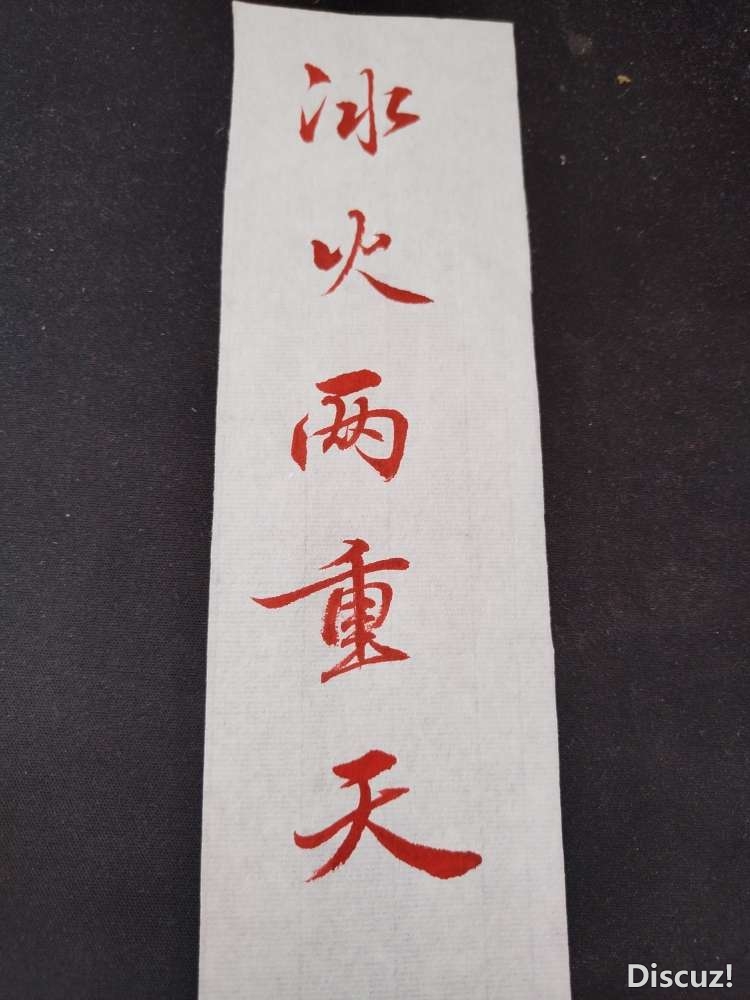 冰火两重天
Discuz!